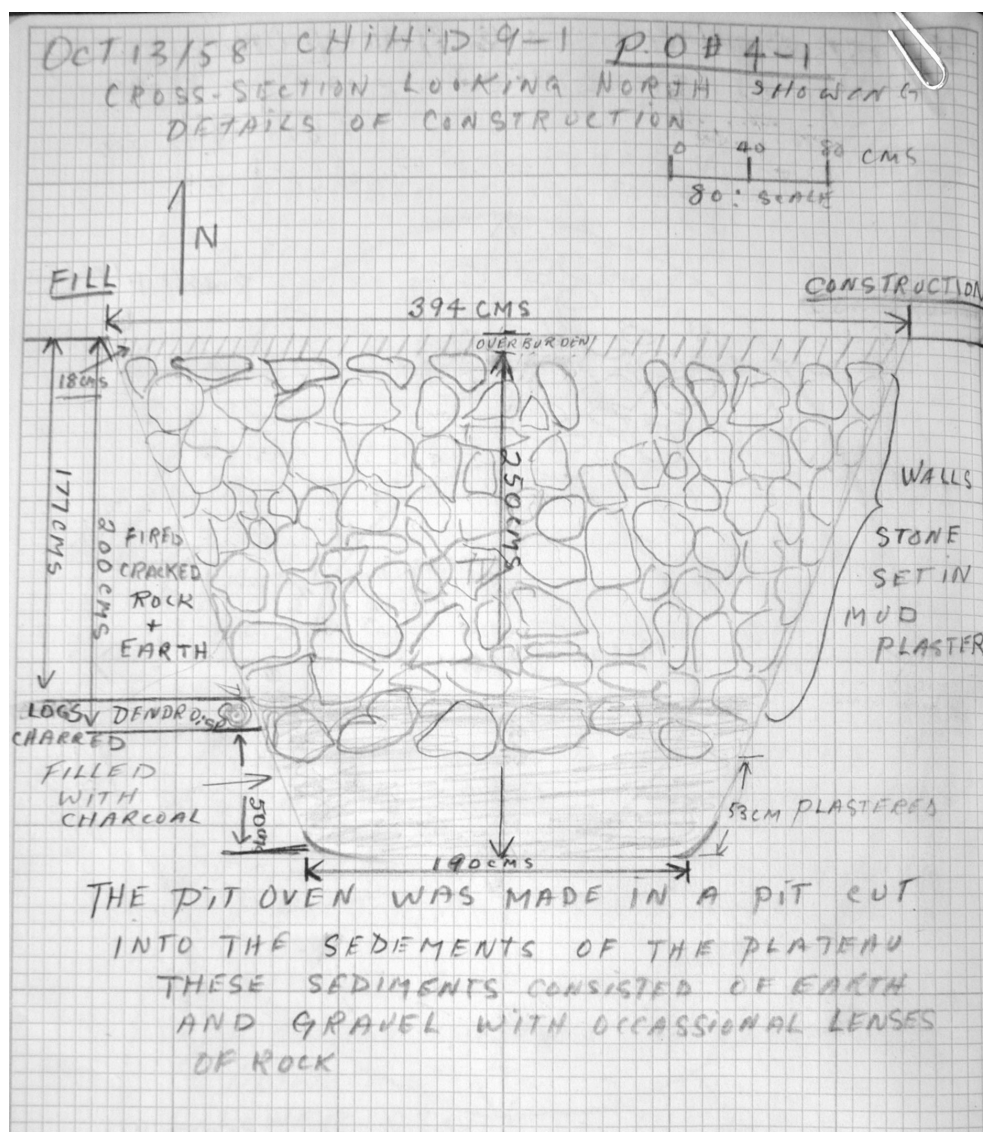 OCT 13/58 CHIH D 9-1 P.O# 4-1
CROSS-SECTION LOOKING NORTH SHOWING
DETAILS OF CONSTRUCTION
0 40 80 CMS
80: SCALE
N
FILL
CONSTRUCTION
394 CMS
OVERBURDEN
18CMS
177CMS
200CMS
250CMS
FIRED
CRACKED
ROCK
+
EARTH
WALLS
STONE
SET IN
MUD
PLASTER
LOGS DENDRO
CHARRED
FILLED
WITH
CHARCOAL
53CM PLASTERED
190CMS
THE PIT OVEN WAS MADE IN A PIT CUT
INTO THE SEDEMENTS OF THE PLATEAU
THESE SEDIMENTS CONSISTED OF EARTH
AND GRAVEL WITH OCCASSIONAL LENSES
OF ROCK